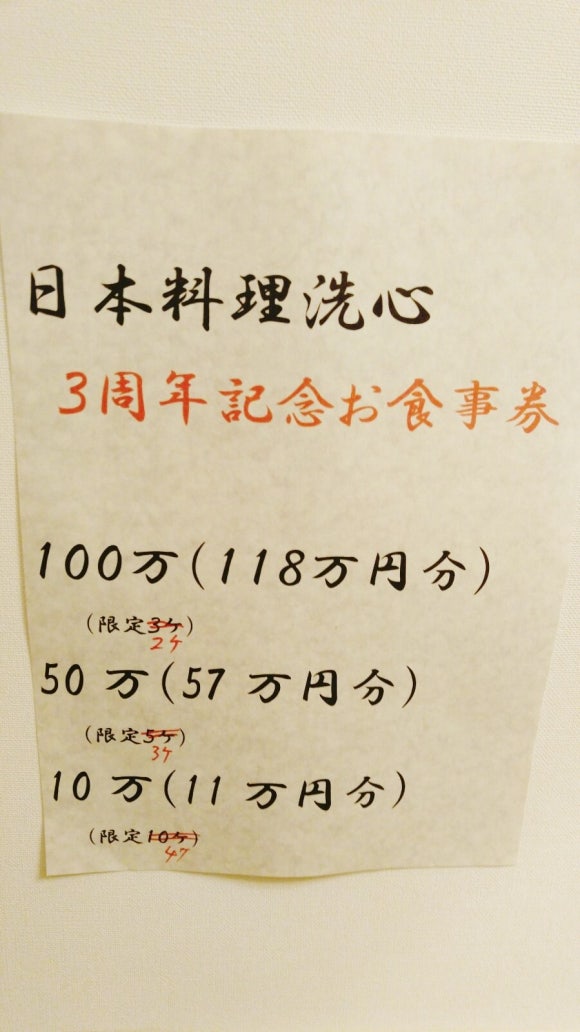 日本料理洗心
3周年記念お食事券
100万(118万円分)
(限定3ヶ)
2ケ
50万(57万円分)
(限定5ヶ)
3ケ
10万(11万円分)
(限定10ヶ)
4ケ